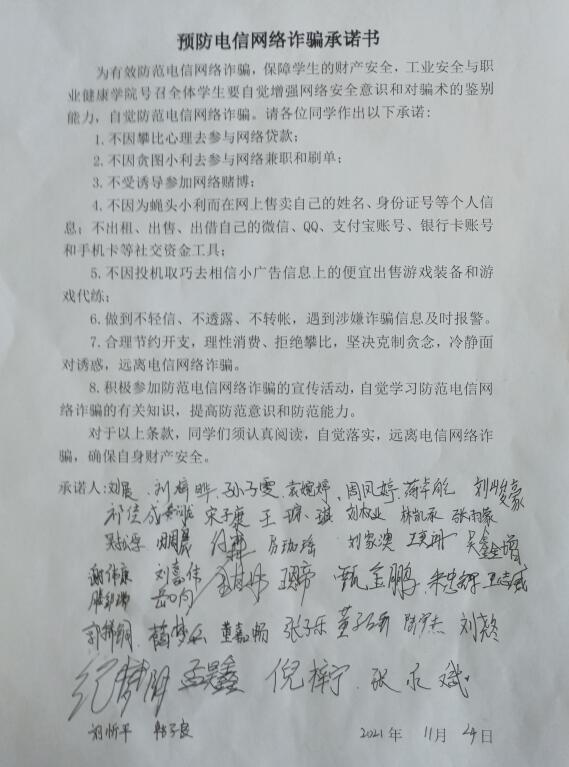 预防电信网络诈骗承诺书
为有效防范电信网络诈骗，保障学生的财产安全，工业安全与职
业健康学院号召全体学生要自觉增强网络安全意识和对骗术的鉴别
能力，自觉防范电信网络诈骗。请各位同学作出以下承诺：
1.不因攀比心理去参与网络贷款；
2.不因贪图小利去参与网络兼职和刷单；
3.不受诱导参加网络赌博；
4.不因为蝇头小利而在网上售卖自己的姓名、身份证号等个人信
息；不出租、出售、出借自己的微信、QQ、支付宝账号、银行卡账号
和手机卡等社交资金工具；
5.不因投机取巧去相信小广告信息上的便宜出售游戏装备和游
戏代练；
6.做到不轻信、不透露、不转帐，遇到涉嫌诈骗信息及时报警。
7.合理节约开支，理性消费、拒绝攀比，坚决克制贪念，冷静面
对诱惑，远离电信网络诈骗。
8.积极参加防范电信网络诈骗的宣传活动，自觉学习防范电信网
络诈骗的有关知识，提高防范意识和防范能力。
对于以上条款，同学们须认真阅读，自觉落实，远离电信网络诈
骗，确保自身财产安全。
承诺人：刘晨 刘梓晔 孙子雯 袁婉婷 周凤婷 刘峻豪
祁佳成 宋子庚 王琳琪 林凯承 张雨豪
田周晨 刘家澳
谢伟康 刘嘉伟 甄金鹏
董嘉畅 张子乐 刘燚
纪梦阳 孟昊鑫 倪梓宁
胡忻平 韩子良 2021年 11月 24日